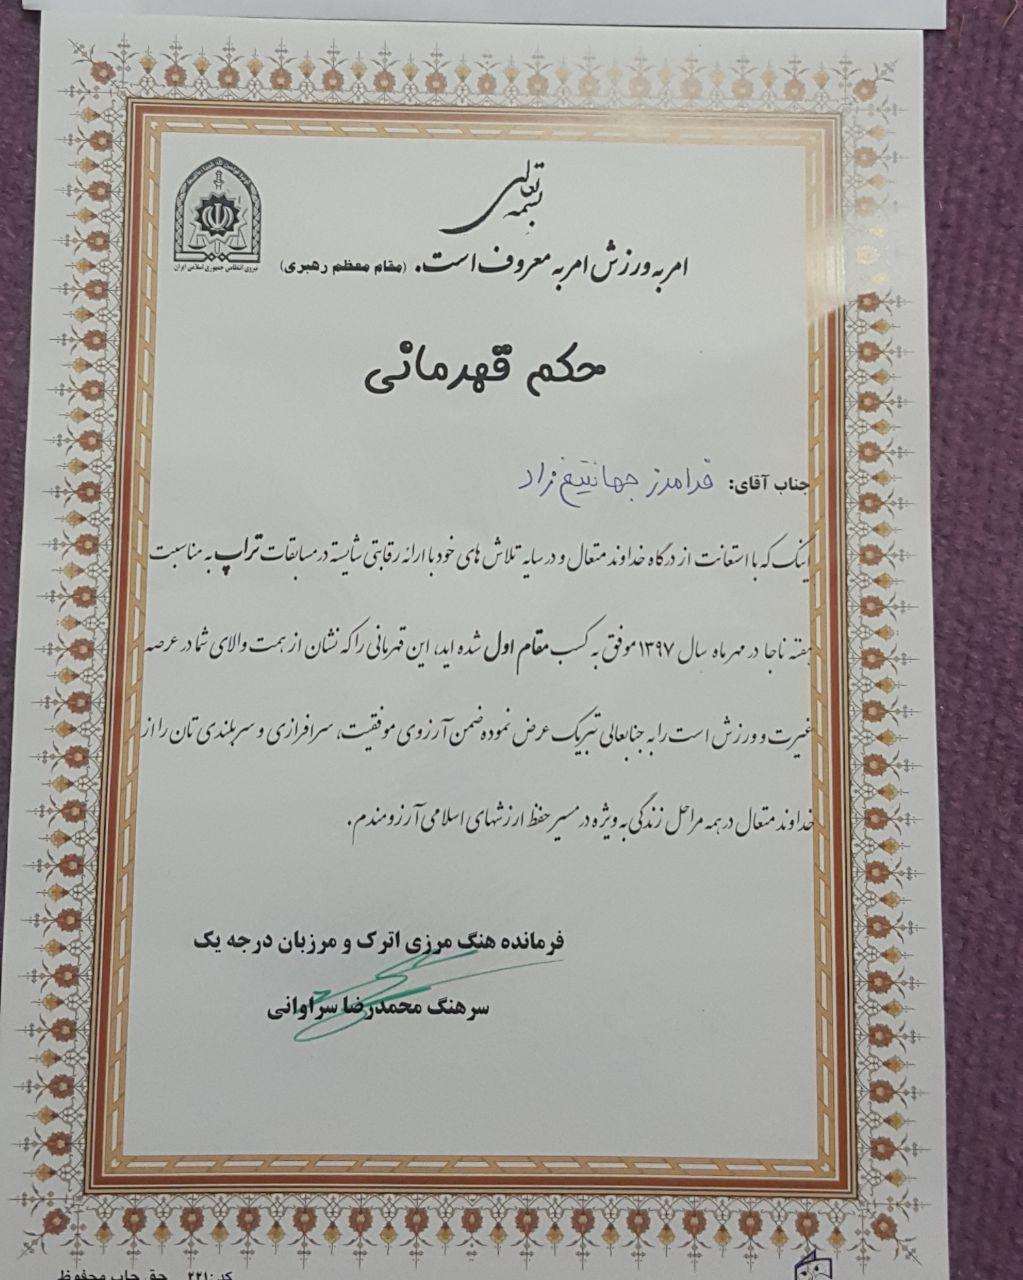 بسمه تعالی
امر به ورزش امر به معروف است. (مقام معظم رهبری)
نیروی انتظامی جمهوری اسلامی ایران
حکم قهرمانی
جناب آقای: فرامرز جهانتیغ نژاد
اینک که با استعانت از درگاه خداوند متعال و در سایه تلاش های خود با ارائه رقابتی شایسته در مسابقات تراپ به مناسبت
هفته ناجا در مهر ماه سال ۱۳۹۷ موفق به کسب مقام اول شده اید، این قهرمانی را که نشان از همت والای شما در عرصه
غیرت و ورزش است را به جنابعالی تبریک عرض نموده ضمن آرزوی موفقیت، سرافرازی و سربلندی تان را از
خداوند متعال در همه مراحل زندگی به ویژه در مسیر حفظ ارزشهای اسلامی آرزومندم.
فرمانده هنگ مرزی اترک و مرزبان درجه یک
سرهنگ محمدرضا سراوانی
کد: ۲۲۱ حق چاپ محفوظ